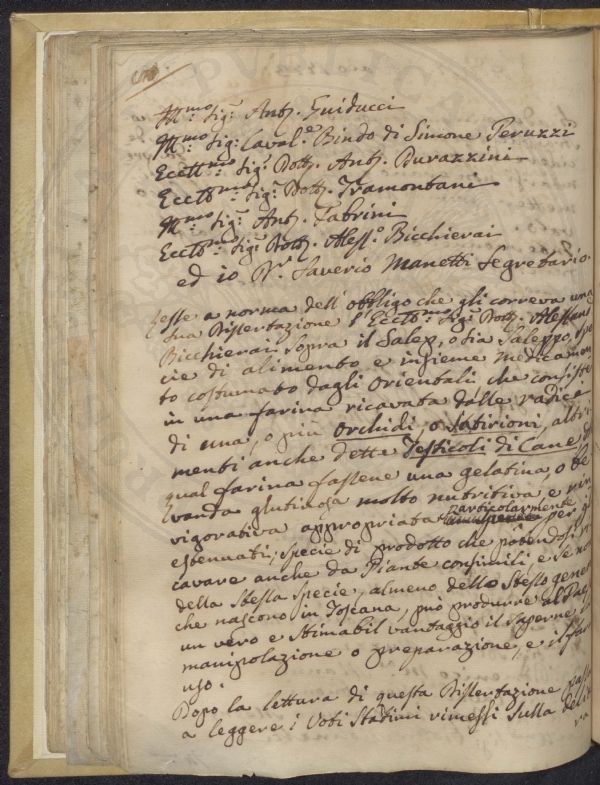 Ill.mo Sig.r Ant. Guiducci
Ill.mo Sig.r Caval.e Bindo di Simone Peruzzi
Eccell.mo Sig.r Dott. Ant. Durazzini
Eccell.mo Sig.r Dott. Tramontani
Ill.mo Sig.r Ant. Fabrini
Eccell.mo Sig.r Dott. Aless.o Bicchierai
ed io D.r Saverio Manetti Segretario.
Lesse a norma dell'obbligo che gli correva una
sua Dissertazione l'Eccell.mo Sig.r Dott. Alessand
Bicchierai sopra il Salep, o sia Saleppo, spe
cie di alimento e insieme medicamen
to costumato dagli Orientali che consiste
in una farina ricavata dalle radici
di una, o più Orchidi, o Satirioni, altri
menti anche dette Testicoli di Cane
qual farina fassene una gelatina, o be
vanda glutinosa molto nutritiva e rin
vigorativa appropriata particolarmente per gl
estenuati; specie di prodotto che potendosi ri
cavare anche da Piante consimili, e se non
della stessa specie, almeno dello stesso genere
che nascono in Toscana, può produrre al Paese
un vero e stimabil vantaggio il saperne la
manipolazione o preparazione, e il farn
uso.
Dopo la lettura di questa Dissertazione passa
a leggere i Voti Stativi rimessi sulla